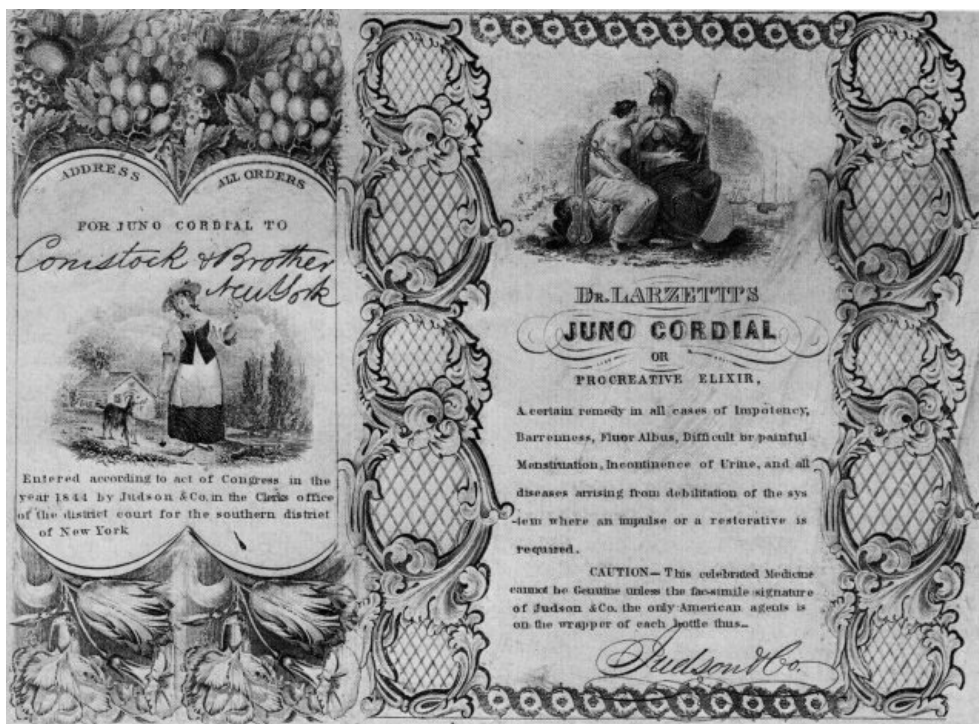 ADDRESS ALL ORDERS
FOR JUNO CORDIAL TO
Comstock & Brother
New York
Entered according to act of Congress in the
year 1844 by Judson & Co. in the Clerks office
of the district court for the southern district
of New York
DR. LARZETTI'S
JUNO CORDIAL
OR
PROCREATIVE ELIXIR,
A certain remedy in all cases of Impotency,
Barrenness, Fluor Albus, Difficult or painful
Menstruation, Incontinence of Urine, and all
diseases arrising from debilitation of the sys
-tem where an impulse or a restorative is
required.
CAUTION— This celebrated Medicine
cannot be Genuine unless the fac-simile signature
of Judson & Co. the only American agents is
on the wrapper of each bottle thus—
Judson & Co.